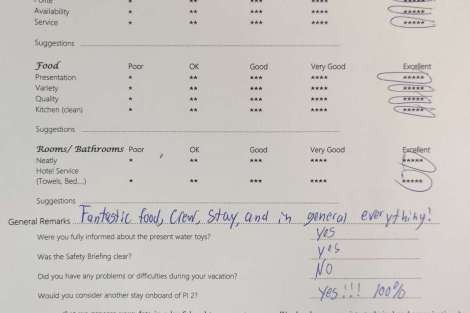 Availability * ** *** **** *****
Service * ** *** **** *****
Suggestions
Food Poor OK Good Very Good Excellent
Presentation * ** *** **** *****
Variety * ** *** **** *****
Quality * ** *** **** *****
Kitchen (clean) * ** *** **** *****
Suggestions
Rooms/ Bathrooms Poor OK Good Very Good Excellent
Neatly * ** *** **** *****
Hotel Service
(Towels, Bed...) * ** *** **** *****
Suggestions
General Remarks Fantastic food, Crew, Stay, and in general everything!
Were you fully informed about the present water toys? Yes
Was the Safety Briefing clear? Yes
Did you have any problems or difficulties during your vacation? NO
Would you consider another stay onboard of PI 2? Yes!!! 100%